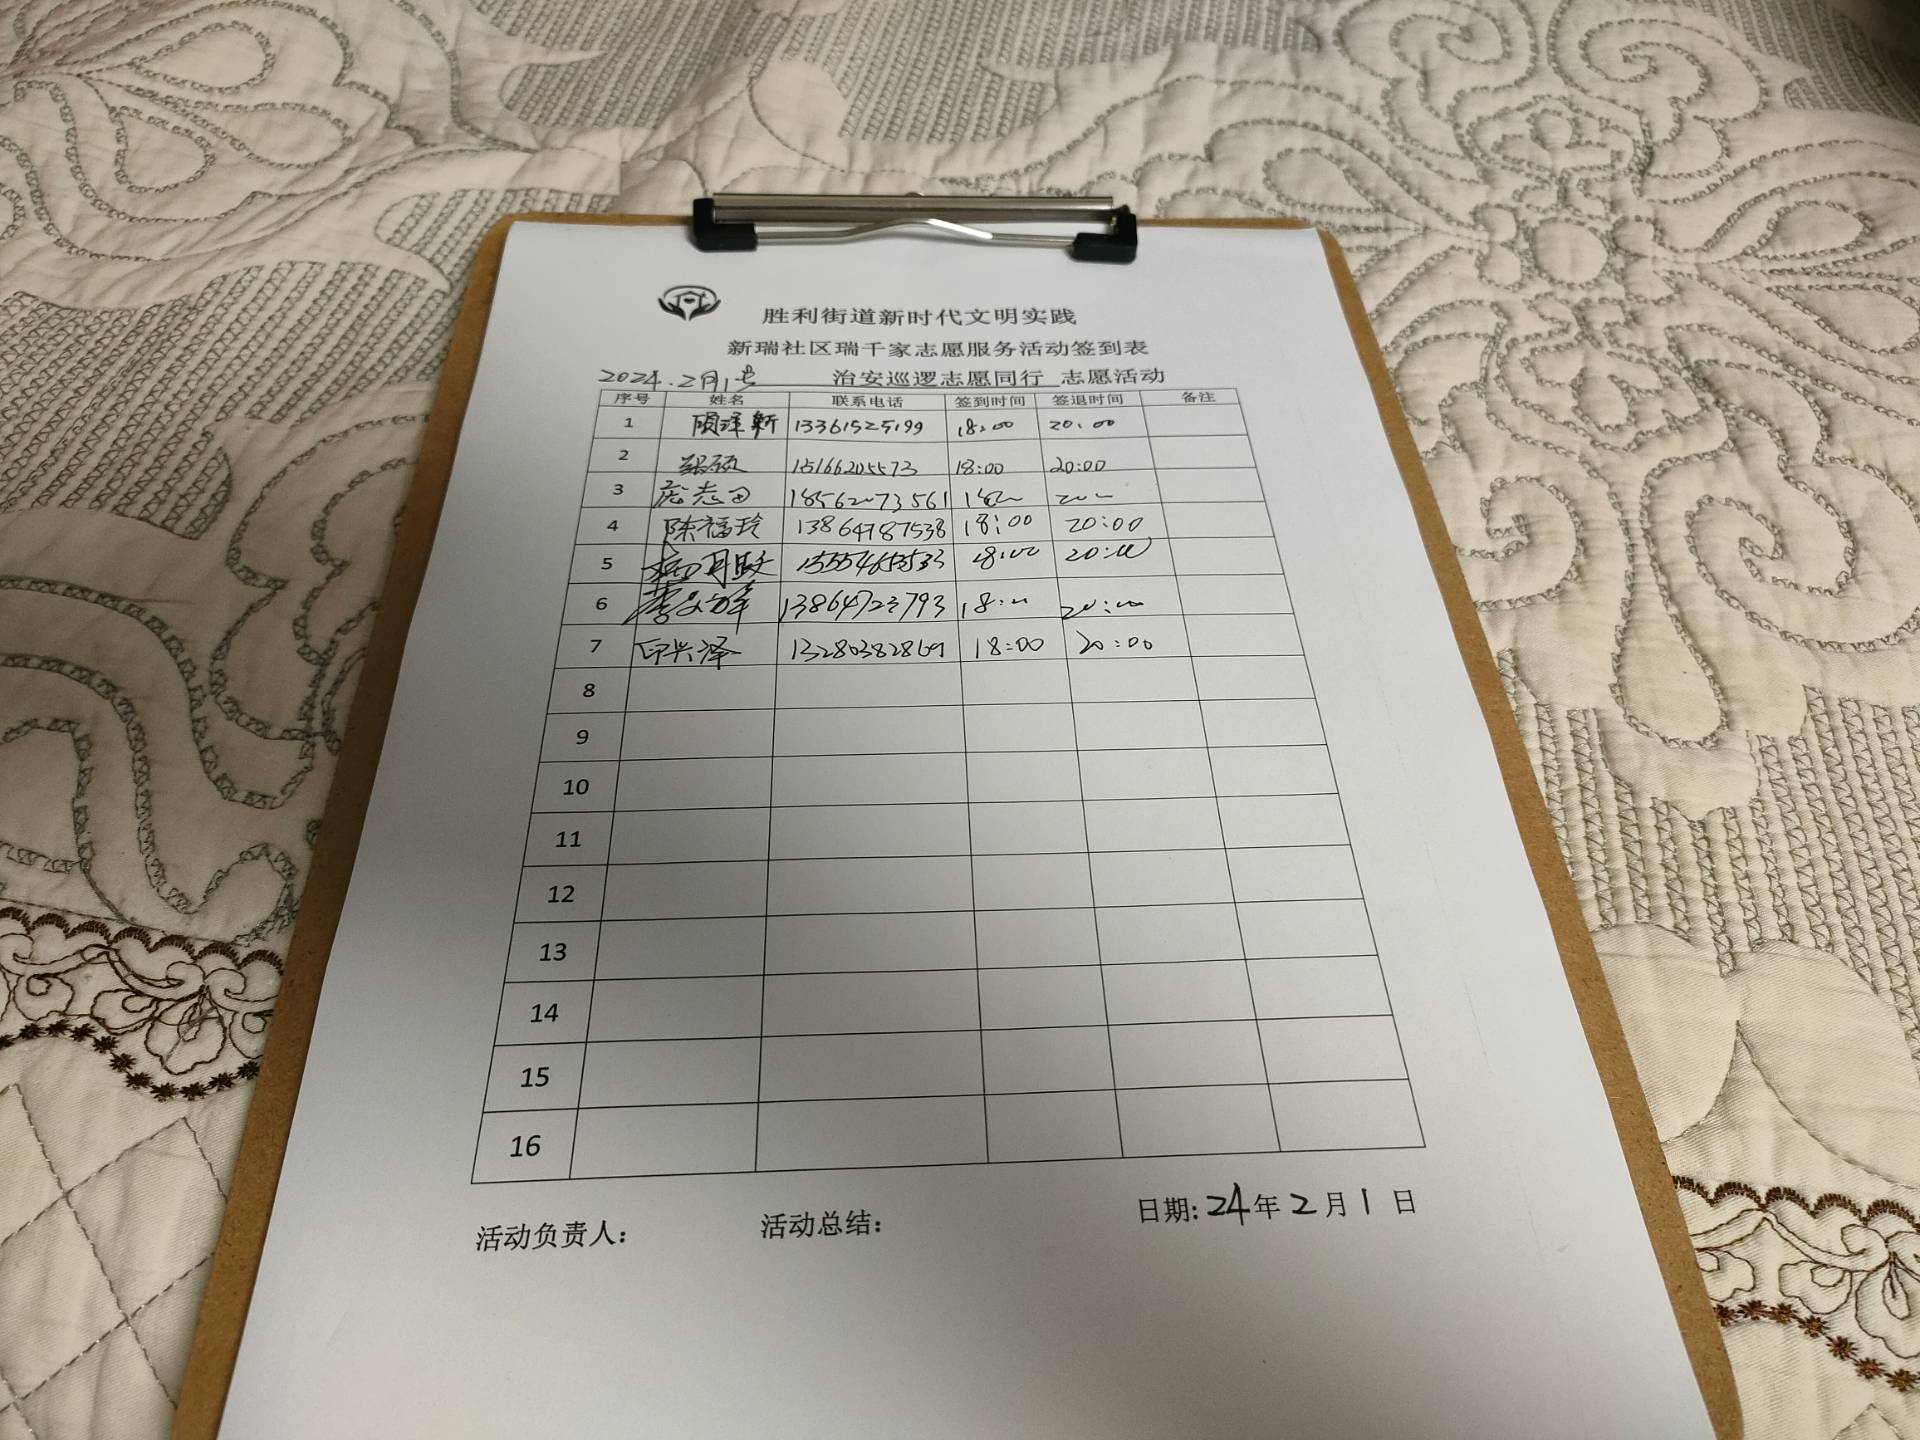 胜利街道新时代文明实践
新瑞社区瑞千家志愿服务活动签到表
2024.2月1号 治安巡逻志愿同行 志愿活动
序号 姓名 联系电话 签到时间 签退时间 备注
1 13361525199 18:00 20:00
2 15166205573 18:00 20:00
3 庞志田 18562073561
4 陈福玲 13864787538 18:00 20:00
5 18:00 20:00
6 13864723793 18:00 20:00
7 印兴泽 13280382869 18:00 20:00
8
9
10
11
12
13
14
15
16
活动负责人: 活动总结: 日期: 24年2月1日